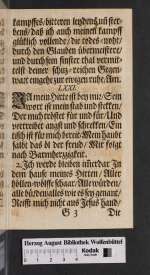 kampffes/bitteren leydens uñ ster-
bens/daß ich auch meinen kampff
glücklich vollende/die todes-noht/
durch den Glauben übermeistere/
und durch sein finster thal vermit-
telst deiner schutz-reichen Gegen-
wart eingehe zur ewigen ruhe. Am.
LXXI.
JA mein Hirte ist bey mir/Sein
wort ist mein stab und stekken/
Der mich tröstet für und für/Und
vertreibet angst und schrekken/Ein
tisch ist für mich bereit: Mein haupt
salbt das öl der freud/Mir folget
nach Barmhertzigkeit.
2. Ich werde bleiben immerdar Jn
dem hause meines Hirten/ Aller
höllen-wölffe schaar/Aller würden/
alle bürden/alles wie es sey genant/
Reisst mich nicht aus Jesus hand/
G 3 Die
Herzog August Bibliothek Wolfenbüttel
Kodak